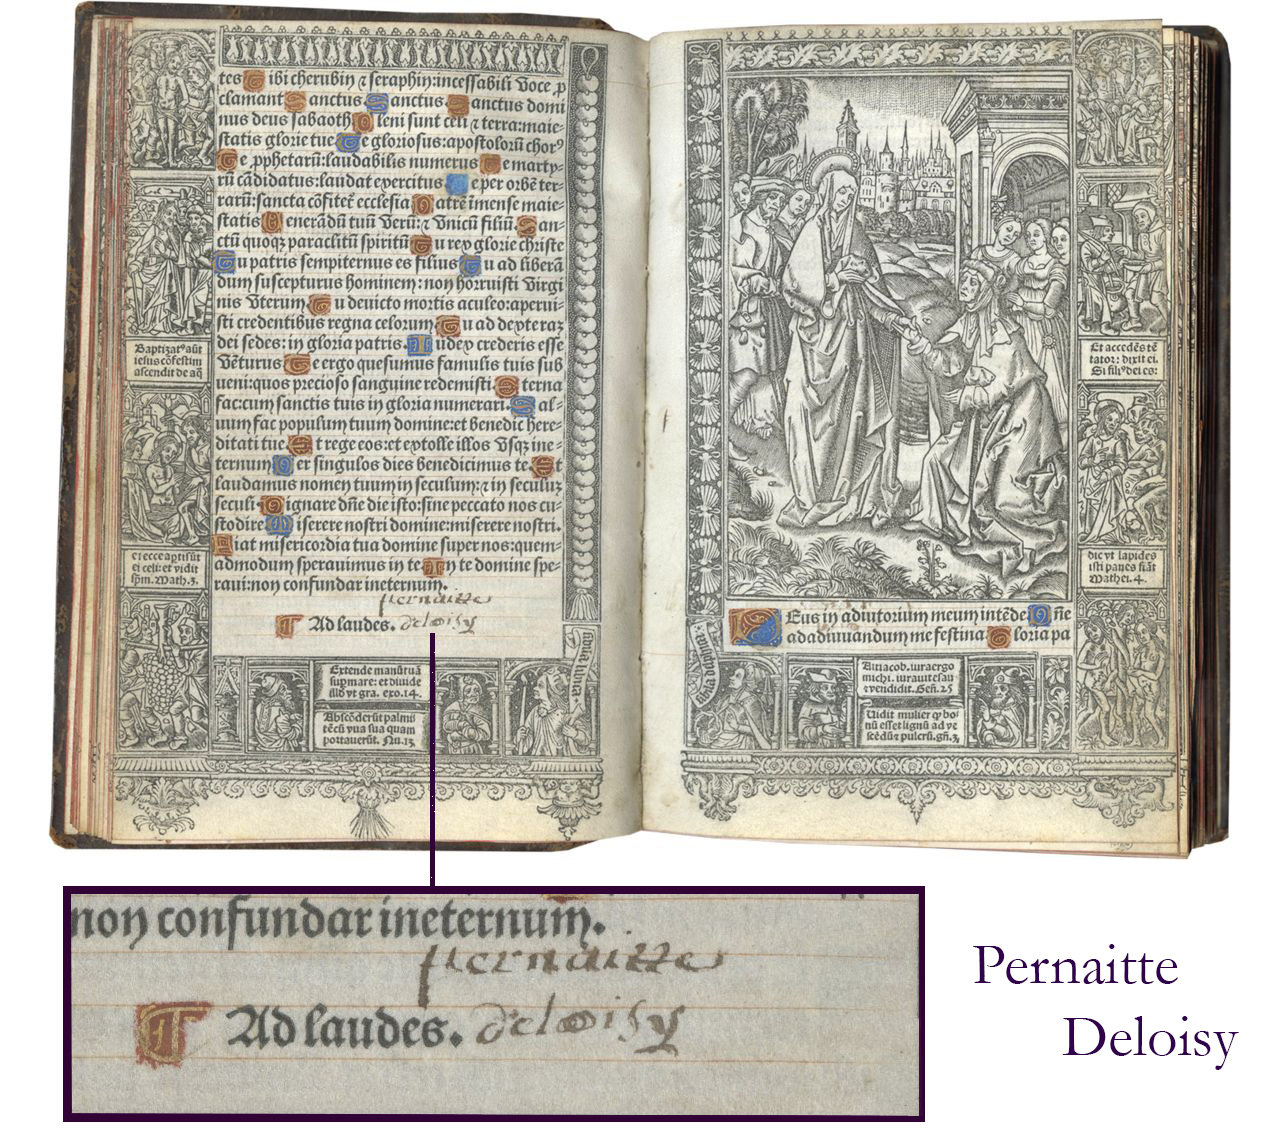 tes T ibi cherubin ⁊ seraphin:incessabili voce ꝓ
clamant S anctus S anctus S anctus domi
nus deus sabaoth P leni sunt celi ⁊ terra:maie-
statis glorie tue T e gloriosus:apostolorū chorꝰ
T e ꝓphetarū:laudabilis numerus T e marty-
rū cādidatus:laudat exercitus T e per orbē ter-
rarū:sancta cōfitet ecclesia P atrē īmense maie-
statis V enerādū tuū verū:⁊ vnicū filiū S an-
ctū quoqꝫ paraclitū spiritū T u rex glorie christe
T u patris sempiternus es filius T u ad liberā
dum suscepturus hominem:non horruisti virgi
nis vterum T u devicto mortis aculeo:aperui-
sti credentibus regna celorum T u ad dexteraꝫ
dei sedes:in gloria patris. I udex crederis esse
vēturus T e ergo quesumus famulis tuis sub
ueni:quos precioso sanguine redemisti E terna
fac:cum sanctis tuis in gloria numerari. S al-
uum fac populum tuum domine:et benedic here-
ditati tue E t rege eos:et extolle illos vsqꝫ ine-
ternum P er singulos dies benedicimus te. E t
laudamus nomen tuum in seculum:⁊ in seculuꝫ
seculi D ignare dn̄e die isto:sine peccato nos cu-
stodire M iserere nostri domine:miserere nostri.
F iat misericordia tua domine super nos:quem-
admodum speravimus in te I n te domine spe-
raui:non confundar ineternum.
pernaitte
Ad laudes. deloisy
Baptizatꝰ aūt
iesus cōfestim
ascendit de aq̄
et ecce apti sūt
ei celi: et vidit
sp̄m. Math. 3.
Extende manū tuā
sup mare: et diuide
illd vt gra. exo. 14.
Abscōderūt palmi
tē cū vua sua quam
portauerūt. Nu. 13
D Eus in adiutorium meum intēde D n̄e
ad adiuuandum me festina G loria pa
Et accedēs tē
tator: dixit ei.
Si filꝰ dei es:
dic vt lapides
isti panes fiāt
Mathei. 4.
Ait iacob. iura ergo
michi. iurauit esau
⁊ vendidit. Geñ. 25
Vidit mulier ꝙ bo
nū esset lignū ad ve
scēdū ⁊ pulcrū. gn̄. 3
non confundar ineternum.
pernaitte
Ad laudes. deloisy
Pernaitte
Deloisy